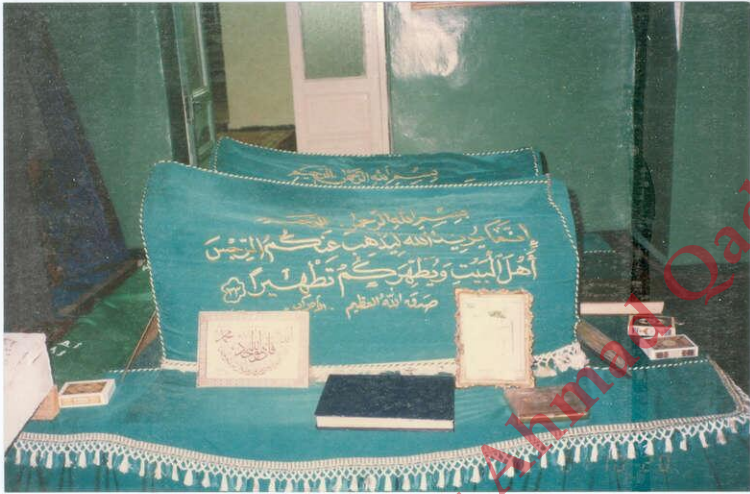 بسم الله الرحمن الرحيم
بسم الله الرحمن الرحيم
إنما يريد الله ليذهب عنكم الرجس
أهل البيت ويطهركم تطهيرا
صدق الله العظيم
Ahmad Qad